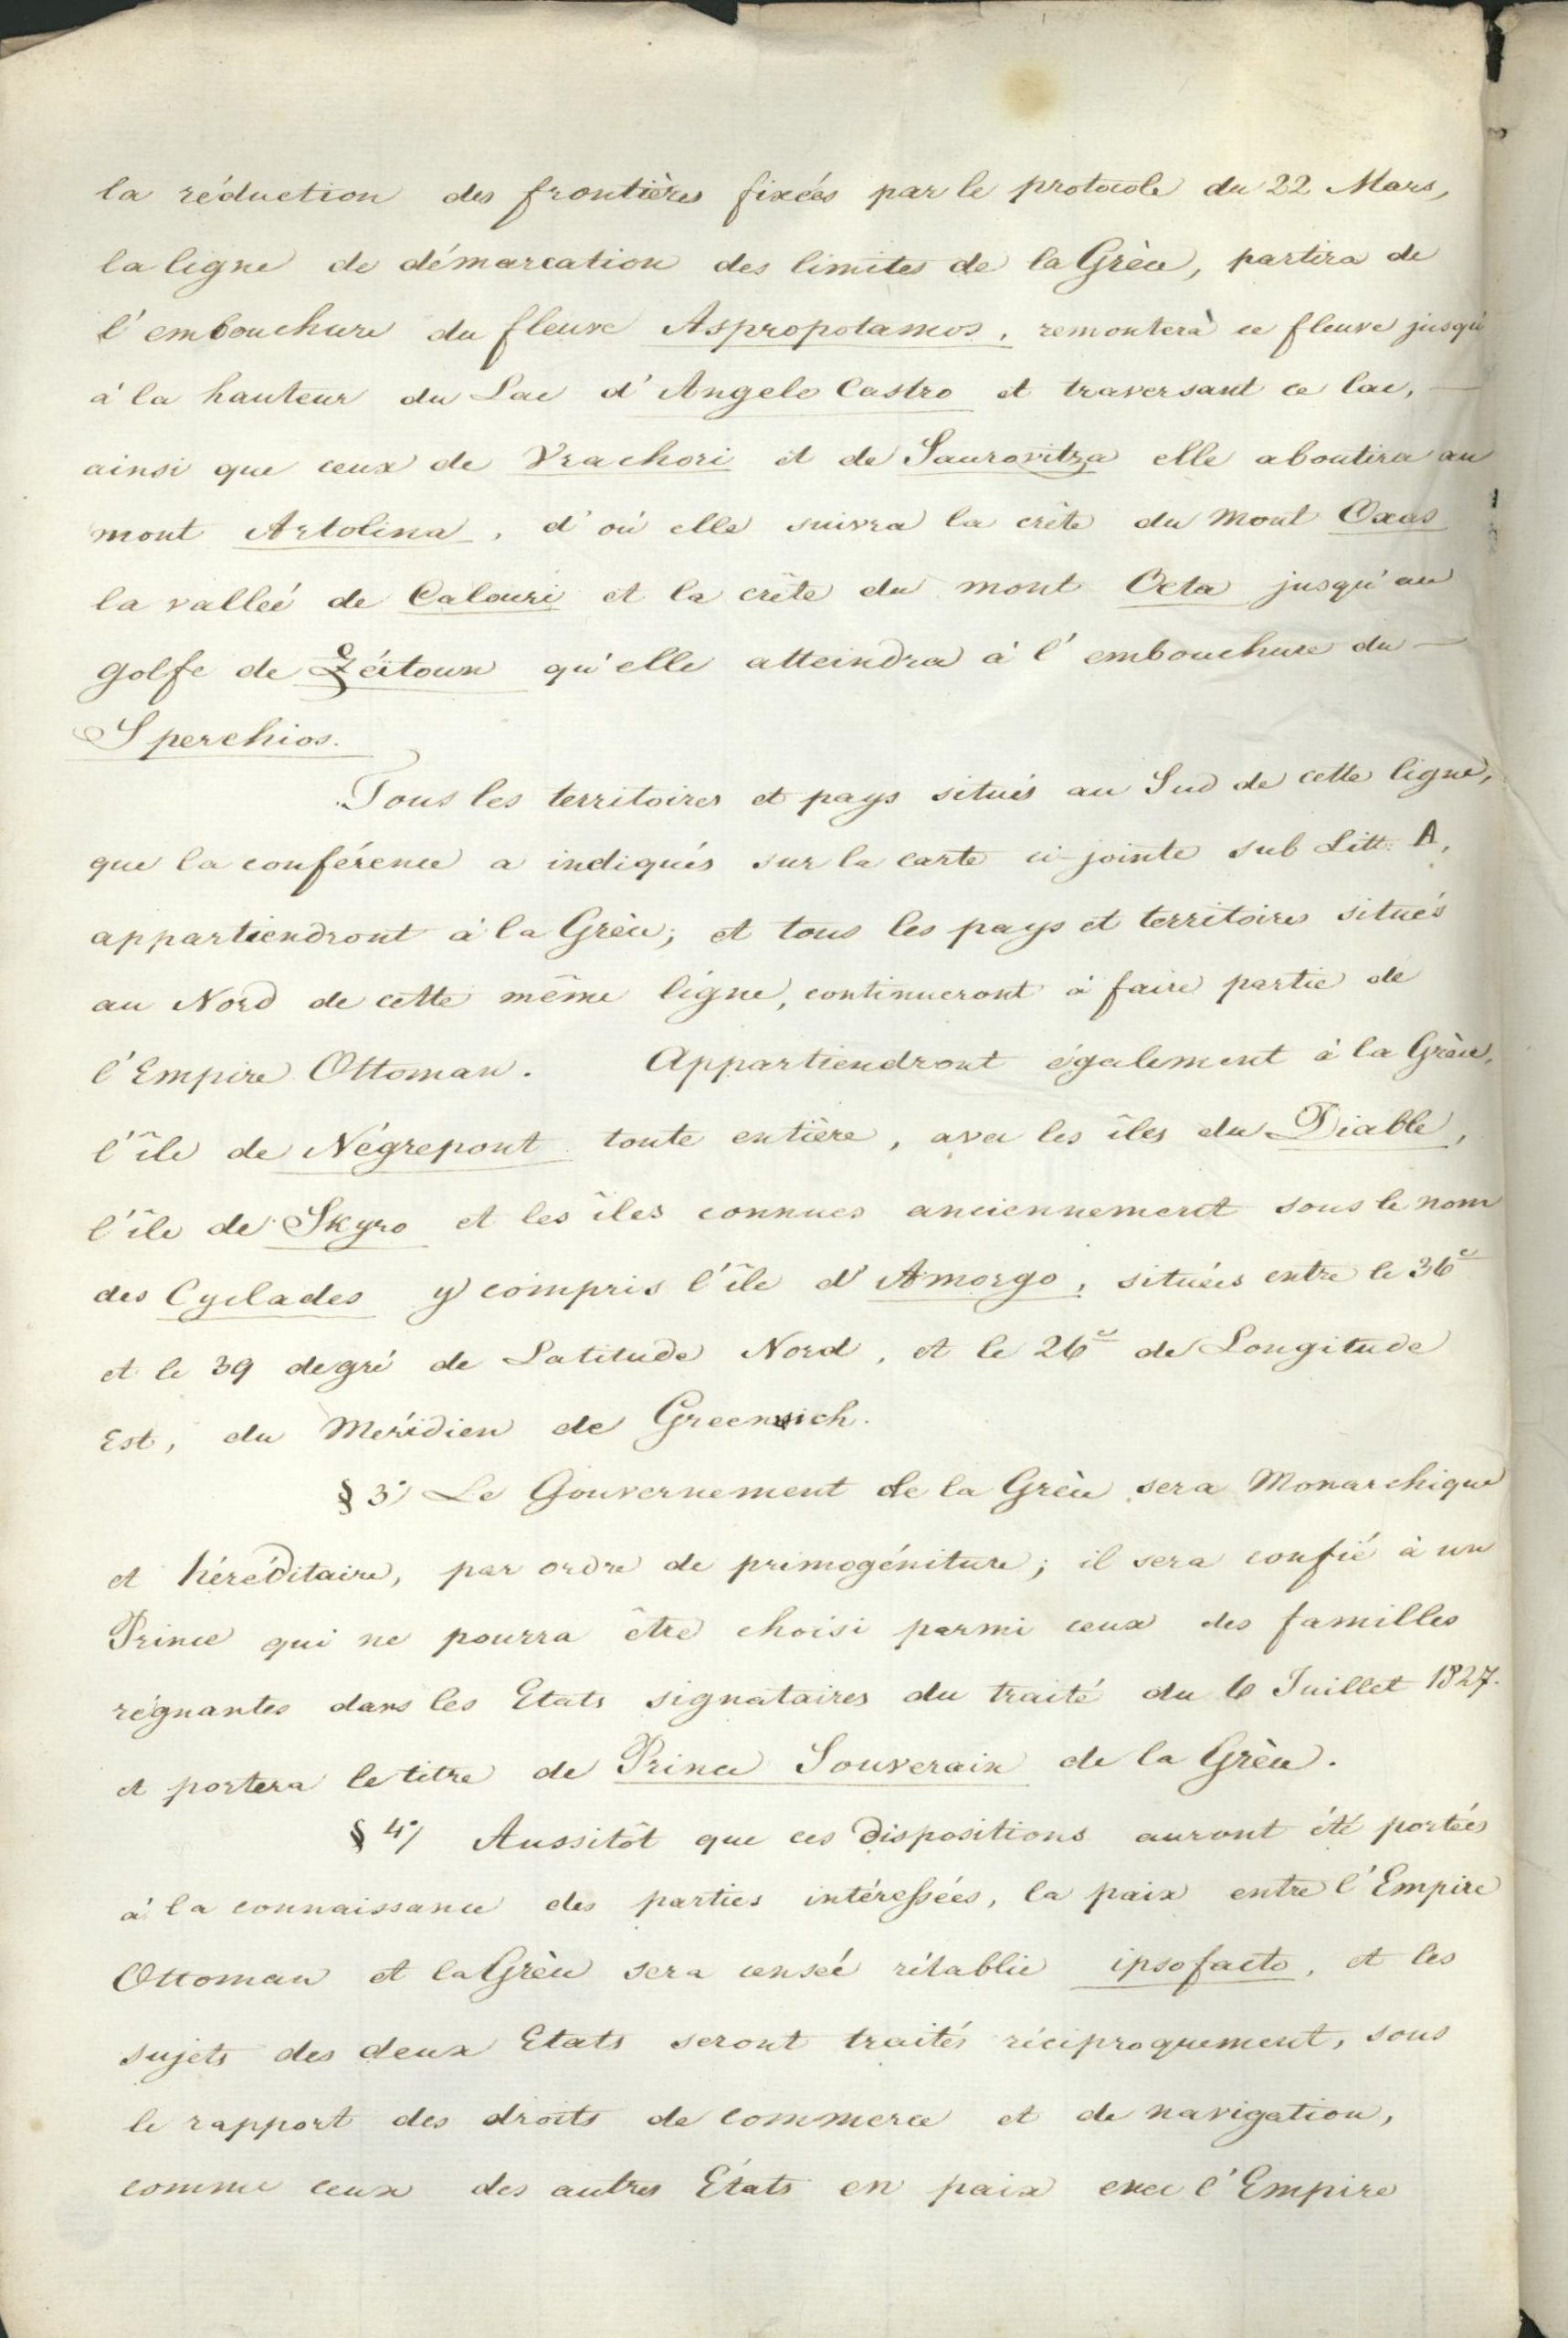 la réduction des frontières fixées par le protocole du 22 Mars,
la ligne de démarcation des limites de la Grèce, partira de
l'embouchure du fleuve Aspropotamos, remonterà ce fleuve jusqu'
à la hauteur du Lac d'Angelo Castro et traversant ce lac, —
ainsi que ceux de Vrachori et de Saurovitza elle aboutira au
mont Artolina, d'où elle suivra la crête du Mont Oxas
la vallée de Calouri et la crête du mont Oeta jusqu'au
golfe de Zéitoun qu'elle atteindra à l'embouchure du —
Sperchios.
Tous les territoires et pays situés au Sud de cette ligne,
que la conférence a indiqués sur la carte ci-jointe sub Litt. A,
appartiendront à la Grèce; et tous les pays et territoires situés
au Nord de cette même ligne, continueront à faire partie de
l'Empire Ottoman. Appartiendront également à la Grèce,
l'île de Négrepont toute entière, avec les îles du Diable,
l'île de Skyro et les îles connues anciennement sous le nom
des Cyclades y compris l'île d'Amorgo, situées entre le 36e
et le 39 degré de Latitude Nord, et le 26e de Longitude
Est, du Méridien de Greenwich.
§ 3°/ Le Gouvernement de la Grèce sera Monarchique
et héréditaire, par ordre de primogéniture; il sera confié à un
Prince qui ne pourra être choisi parmi ceux des familles
régnantes dans les Etats signataires du traité du 6 Juillet 1827.
et portera le titre de Prince Souverain de la Grèce.
§ 4°/ Aussitôt que ces dispositions auront été portées
à la connaissance des parties intéressées, la paix entre l'Empire
Ottoman et la Grèce sera censée rétablie ipso facto, et les
sujets des deux Etats seront traités réciproquement, sous
le rapport des droits de commerce et de navigation,
comme ceux des autres États en paix avec l'Empire